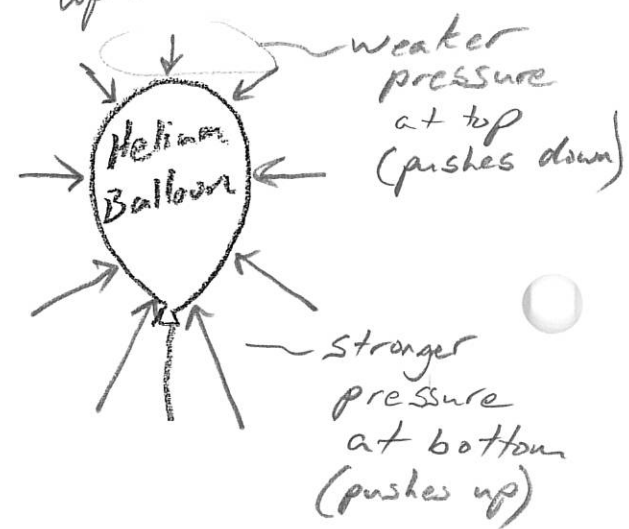 weaker
pressure
at top
(pushes down)
Helium
Balloon
stronger
pressure
at bottom
(pushes up)